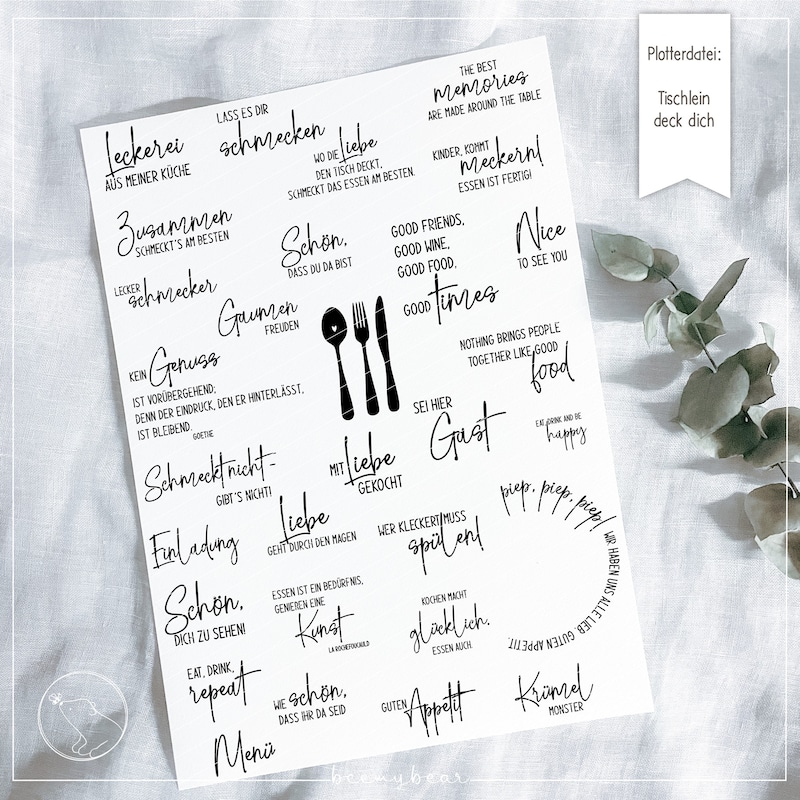 Plotterdatei:
Tischlein
deck dich
THE BEST
memories
ARE MADE AROUND THE TABLE
LASS ES DIR
schmecken
Leckerei
AUS MEINER KÜCHE
WO DIE Liebe
DEN TISCH DECKT,
SCHMECKT DAS ESSEN AM BESTEN.
KINDER, KOMMT
meckern!
ESSEN IST FERTIG!
Zusammen
SCHMECKT'S AM BESTEN
Schön,
DASS DU DA BIST
GOOD FRIENDS,
GOOD WINE,
GOOD FOOD,
GOOD times
Nice
TO SEE YOU
LECKER
schmecker
Gaumen
FREUDEN
NOTHING BRINGS PEOPLE
TOGETHER LIKE GOOD
food
KEIN Genuss
IST VORÜBERGEHEND;
DENN DER EINDRUCK, DEN ER HINTERLÄSST,
IST BLEIBEND.
GOETHE
SEI HIER
Gast
EAT, DRINK AND BE
happy
Schmeckt nicht-
GIBT'S NICHT!
MIT Liebe
GEKOCHT
piep, piep, piep! WIR HABEN UNS ALLE LIEB. GUTEN APPETIT.
Einladung
Liebe
GEHT DURCH DEN MAGEN
WER KLECKERT MUSS
spülen!
Schön,
DICH ZU SEHEN!
ESSEN IST EIN BEDÜRFNIS,
GENIEßEN EINE
Kunst
LA ROCHEFOUCAULD
KOCHEN MACHT
glücklich,
ESSEN AUCH.
EAT, DRINK,
repeat
WIE schön,
DASS IHR DA SEID
GUTEN Appetit
Krümel
MONSTER
Menü
beemybear